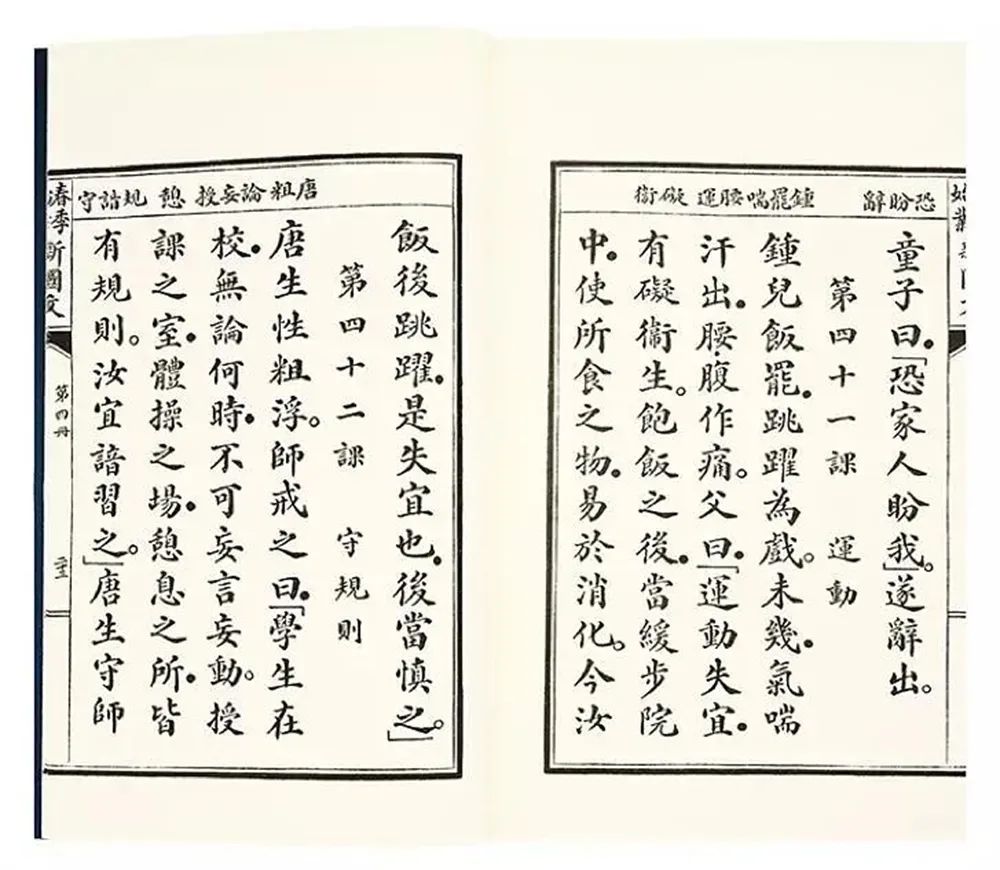 恐盼辭
鍾罷喘腰運礙衛
童子曰。「恐家人盼我。」遂辭出。
第四十一課 運動
鍾兒飯罷。跳躍為戲。未幾。氣喘
汗出。腰腹作痛。父曰。「運動失宜。
有礙衞生。飽飯之後。當緩步院
中。使所食之物。易於消化。今汝
唐粗論妄授憩規諳守
飯後跳躍。是失宜也。後當慎之。」
第四十二課 守規則
唐生性粗浮。師戒之曰。「學生在
校。無論何時。不可妄言妄動。授
課之室。體操之場。憩息之所。皆
有規則。汝宜諳習之。」唐生守師
季新國文
第四冊